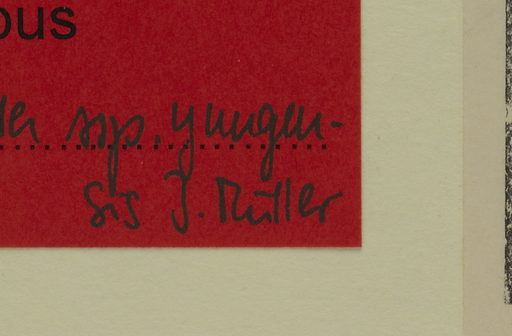 ous
ssp. yungen-
sis J. Müller